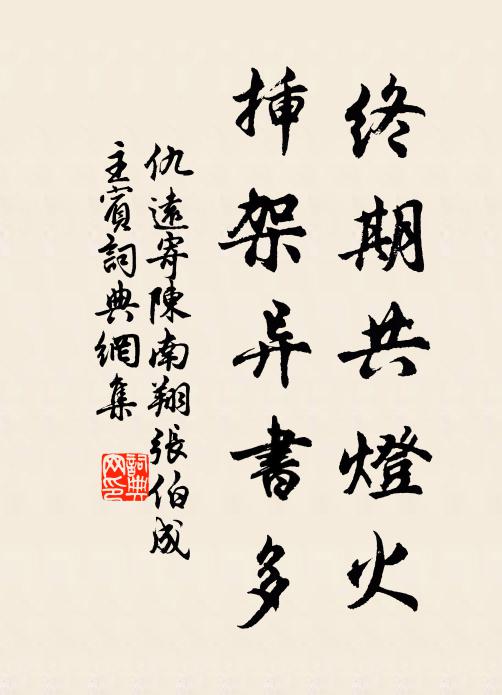 終期共燈火
揷架异書多
仇遠寄陳南翔張伯成
主賓詞典網集
詞典
网印